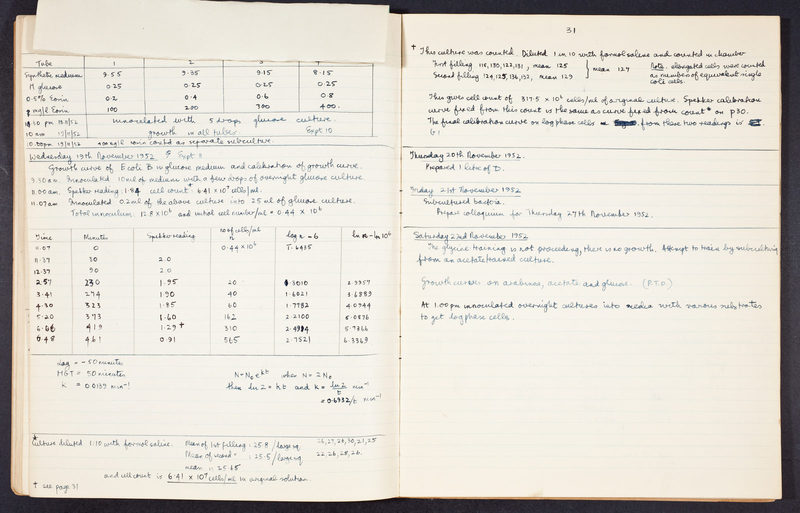 Tube 1 2 3 4
Synthetic medium 9.55 9.35 9.15 8.15
M glucose 0.25 0.25 0.25 0.25
0.5% Eosin 0.2 0.4 0.6 0.8
mg/l Eosin 100 200 300 400.
innoculated with 5 drops glucose culture.
10 am 17/11/52 growth in all tubes Expt 10
10.00pm 17/11/52 400 mg/l eosin could as separate subculture.
Wednesday 19th November 1952 Expt 11
Growth curve of E coli B in glucose medium and calibration of growth curve.
9.30 am. Innoculated 10ml of medium with a few drops of overnight glucose culture
11.00 am. Spekker reading: 1.84 cell count* 6.41 x 10⁷ cells/ml.
11.07 am Innoculated 0.2ml of the above culture into 25 ml of glucose culture.
Total innoculum 12.8 x 10⁶ and initial cell number/ml = 0.44 x 10⁶
Time Minutes Spekker reading no of cells/ml n log n - 6 ln n - ln 10⁶
11.07 0 0.44 x 10⁶ T.6435
11.37 30 2.0
12.37 90 2.0
2.57 230 1.95 20 1.3010 2.9957
3.41 274 1.90 40 1.6021 3.6889
4.30 323 1.85 60 1.7782 4.0944
5.20 373 1.60 162 2.2100 5.0876
6.06 419 1.29 † 310 2.4914 5.7366
6.48 461 0.91 565 2.7521 6.3369
Lag = ~50 minutes
MGT = 50 minutes N = N₀eᵏᵗ when N = 2N₀
k = 0.0139 min⁻¹ then ln 2 = kt and k = ln 2/t min⁻¹
= 0.6932/t min⁻¹
* Culture diluted 1:10 with formol saline. Mean of 1st filling: 25.8 / large sq 26,27,26,30,21,25
Mean of second " : 25.5 / large sq 22,26,28,26.
mean is 25.65
and cell count is 6.41 x 10⁷ cells/ml in original solution.
† see page 31
31
† This culture was counted. Diluted 1 in 10 with formol saline and counted in chamber
First filling 118,130,122,131, mean 125
Second filling 124,125,136,132, mean 129
mean 127
Note. elongated cells were counted as number of equivalent single coli cells.
This gives cell count of 317.5 x 10⁶ cells/ml of original culture. Spekker calibration
curve fixed from this count is the same as curve fixed from count * on p30.
The final calibration curve on log phase cells from these two readings is
G1
Thursday 20th November 1952.
Prepared 1 litre of D.
Friday 21st November 1952
Subcultured bacteria.
Prepare colloquium for Thursday 27th November 1952.
Saturday 22nd November 1952
The glycine training is not proceeding, there is no growth. Attempt to train by subculturing
from an acetate trained culture.
Growth curves on arabinose, acetate and glucose. (P.T.O.)
At 1.00 pm innoculated overnight cultures into media with various substrates
to get log phase cells.